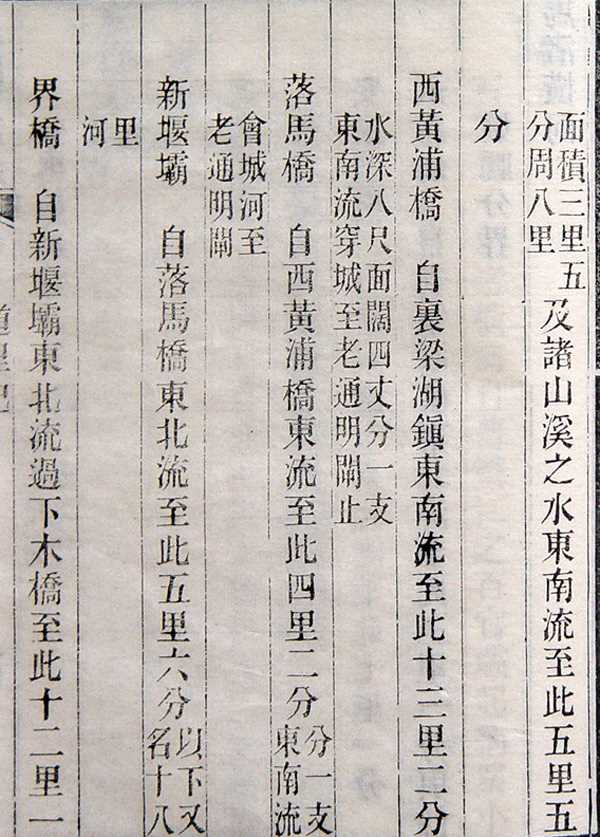 面積三里五
分周八里
及諸山溪之水東南流至此五里五
分
西黃浦橋 自裏梁湖鎮東南流至此十三里二分
水深八尺面闊四丈分一支
東南流穿城至老通明閘止
落馬橋 自西黃浦橋東流至此四里二分
分一支
東南流
會城河至
老通明閘
新堰壩 自落馬橋東北流至此五里六分
以下又
名十八
里
河
界橋 自新堰壩東北流過下木橋至此十二里一